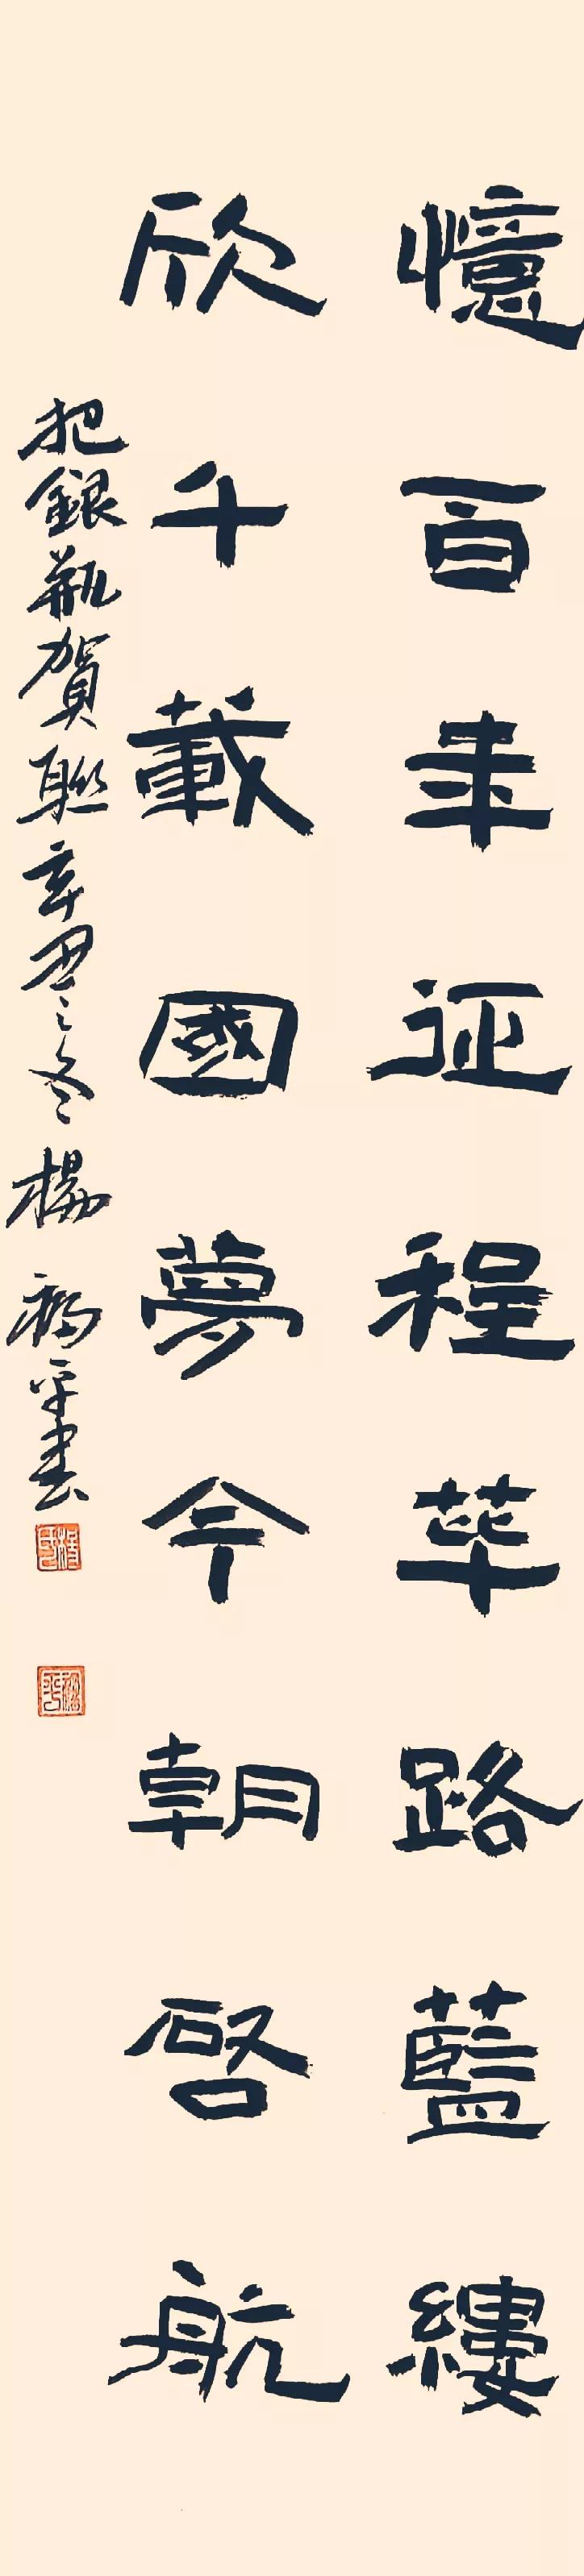 憶百年征程蓽路藍縷
欣千載國夢今朝啓航
把銀瓶賀聯辛丑之冬楊福平書